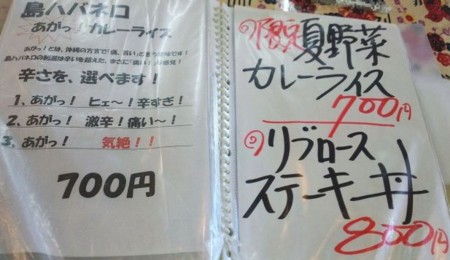 島ハバネロ
あがっ!カレーライス
辛さを、選べます!
1、あがっ! ヒェ~!辛すぎ!
2、あがっ! 激辛!痛い~!
3、あがっ! 気絶!!
700円
限定夏野菜
カレーライス
700円
リブロース
ステーキ丼
800円